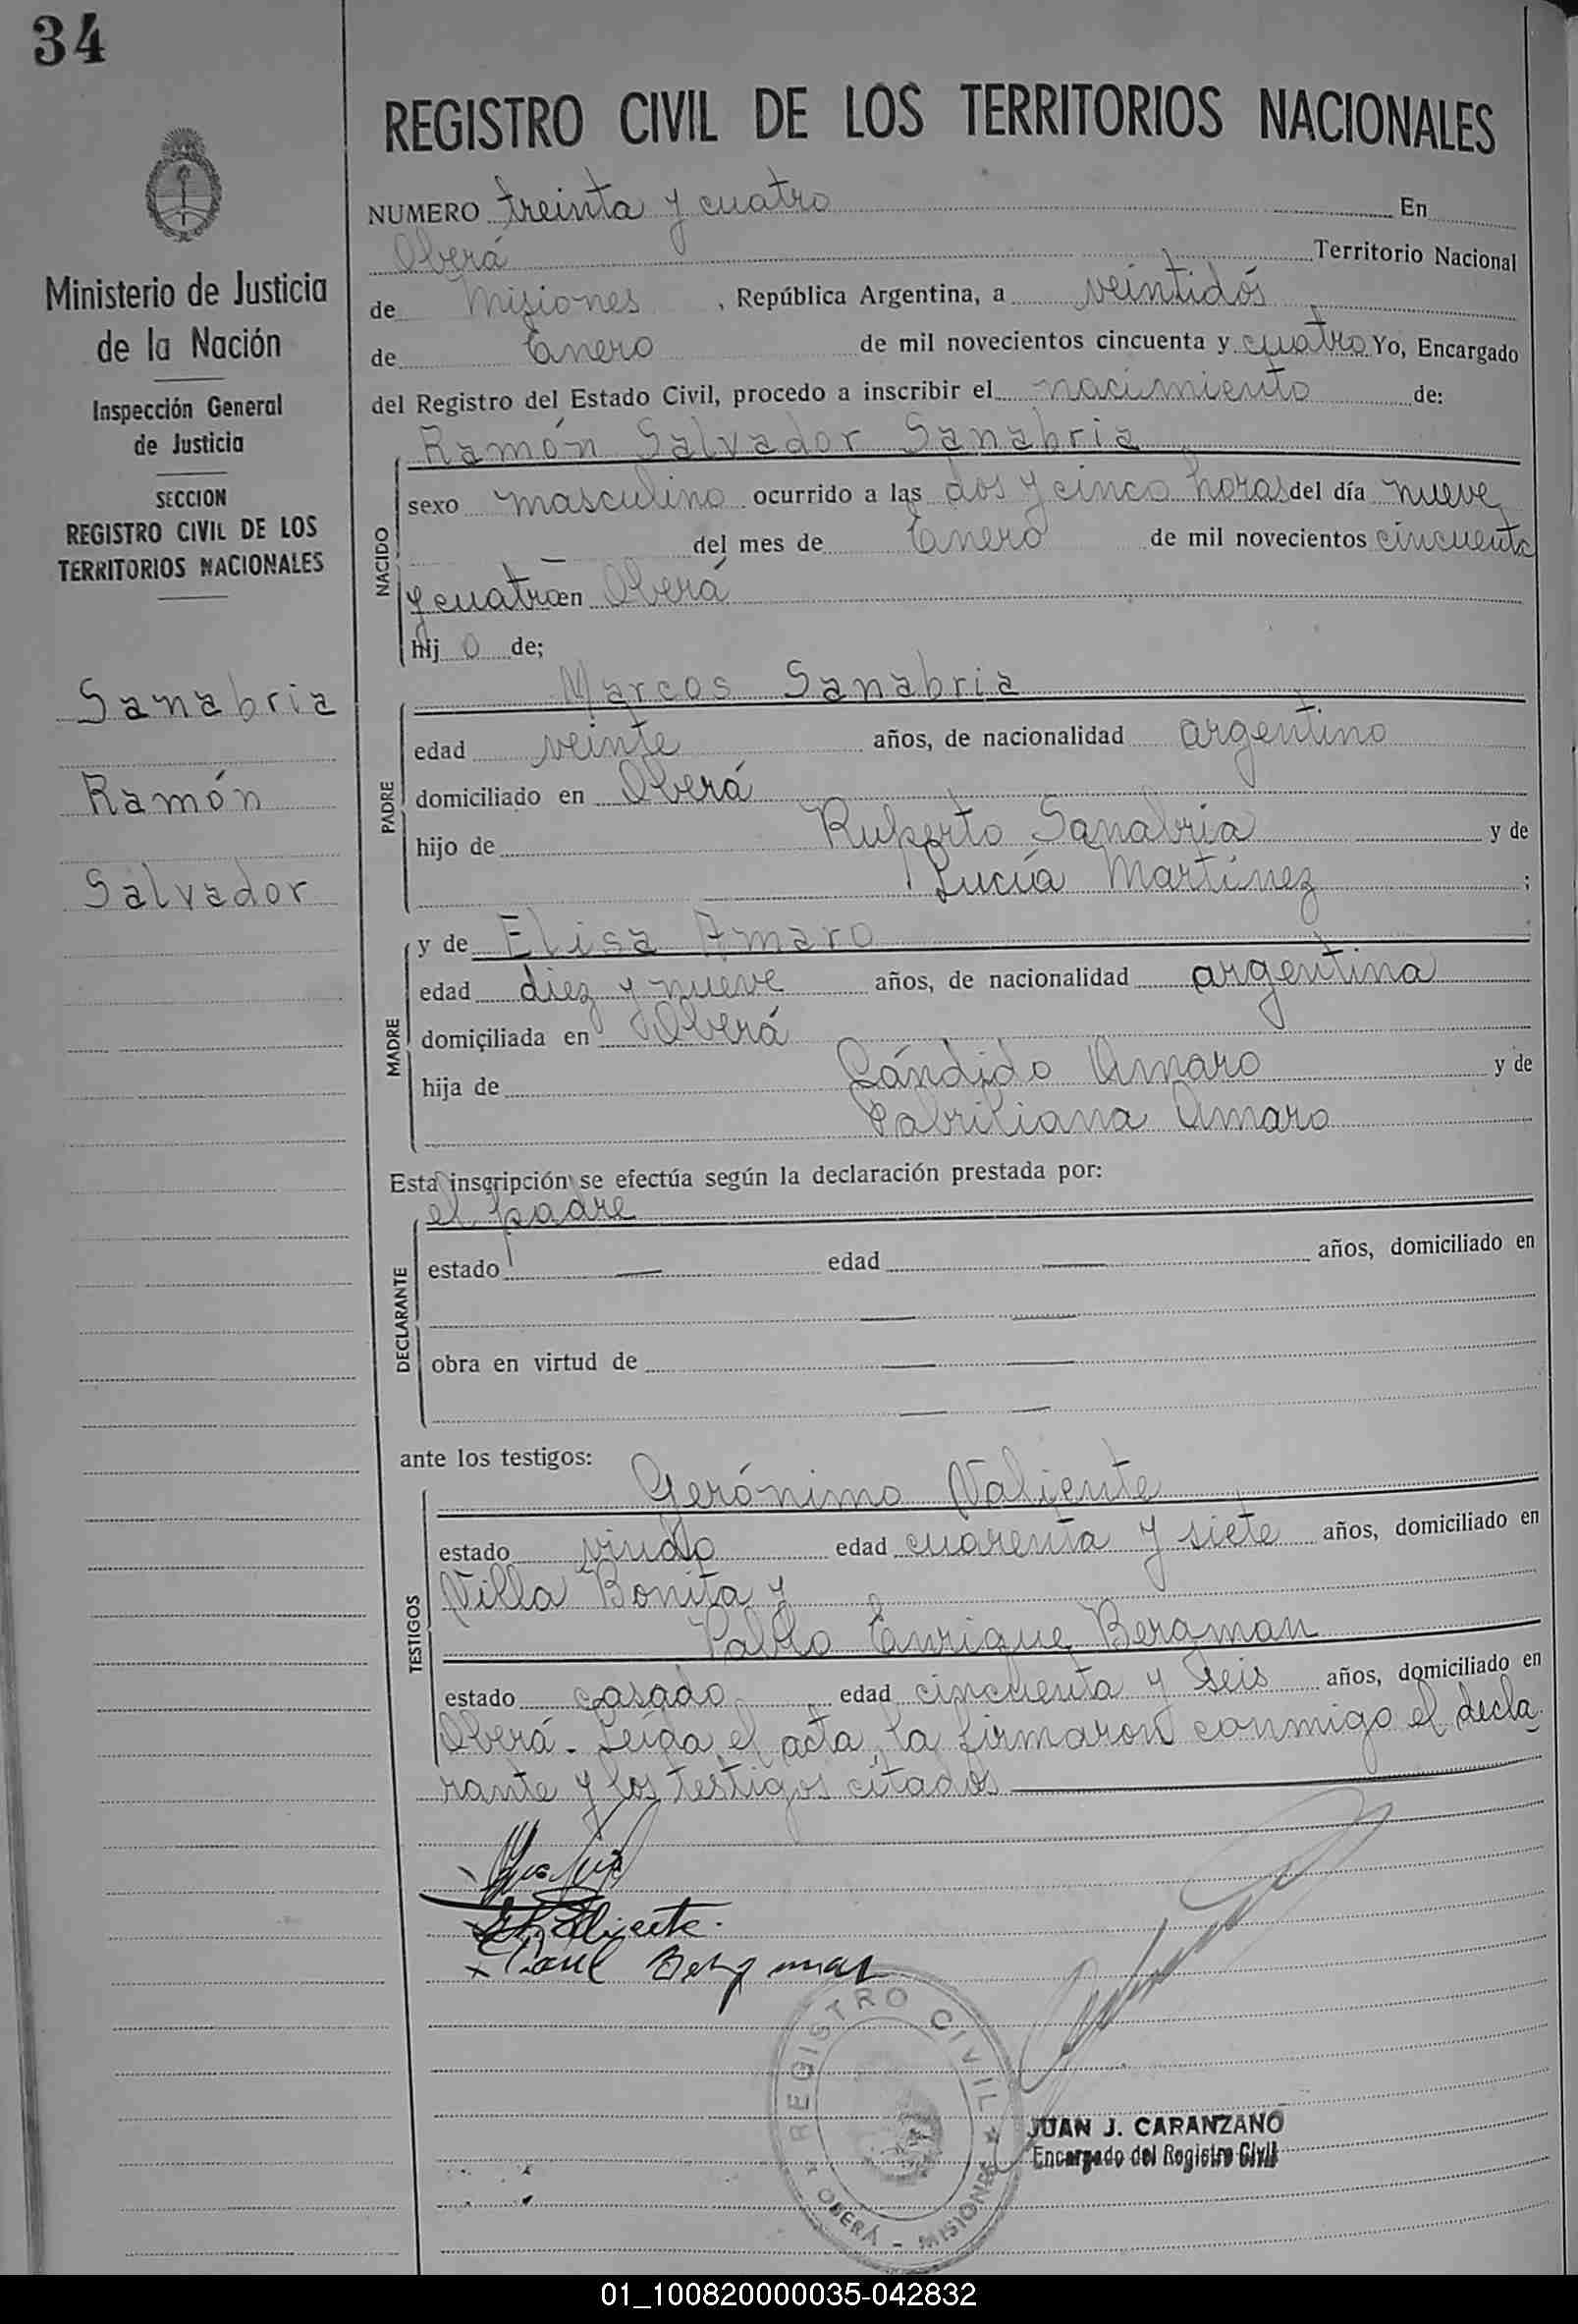 34
REGISTRO CIVIL DE LOS TERRITORIOS NACIONALES
Ministerio de Justicia
de la Nación
Inspección General
de Justicia
SECCION
REGISTRO CIVIL DE LOS
TERRITORIOS NACIONALES
Sanabria
Ramón
Salvador
NUMERO treinta y cuatro En
Oberá Territorio Nacional
de Misiones, República Argentina, a veintidós
de Enero de mil novecientos cincuenta y cuatro Yo, Encargado
del Registro del Estado Civil, procedo a inscribir el nacimiento de:
Ramón Salvador Sanabria
NACIDO
sexo masculino ocurrido a las dos y cinco horas del día nueve
del mes de Enero de mil novecientos cincuenta
y cuatro en Oberá
hij o de;
Marcos Sanabria
PADRE
edad veinte años, de nacionalidad argentino
domiciliado en Oberá
hijo de Ruperto Sanabria y de
Lucía Martinez ;
y de Elisa Amaro
MADRE
edad diez y nueve años, de nacionalidad argentina
domiciliada en Oberá
hija de Cándido Amaro y de
Amaro
Esta inscripción se efectúa según la declaración prestada por:
el padre
DECLARANTE
estado — edad — años, domiciliado en
— —
obra en virtud de — —
— —
ante los testigos:
Gerónimo Valiente
TESTIGOS
estado viudo edad cuarenta y siete años, domiciliado en
Villa Bonita y
Pablo Enrique Bergman
estado casado edad cincuenta y seis años, domiciliado en
Oberá. Leída el acta, la firmaron conmigo el decla
rante y los testigos citados
Valiente.
Paul Bergman
REGISTRO CIVIL
OBERÁ - MISIONES
JUAN J. CARANZANO
Encargado del Registro Civil
01_100820000035-042832